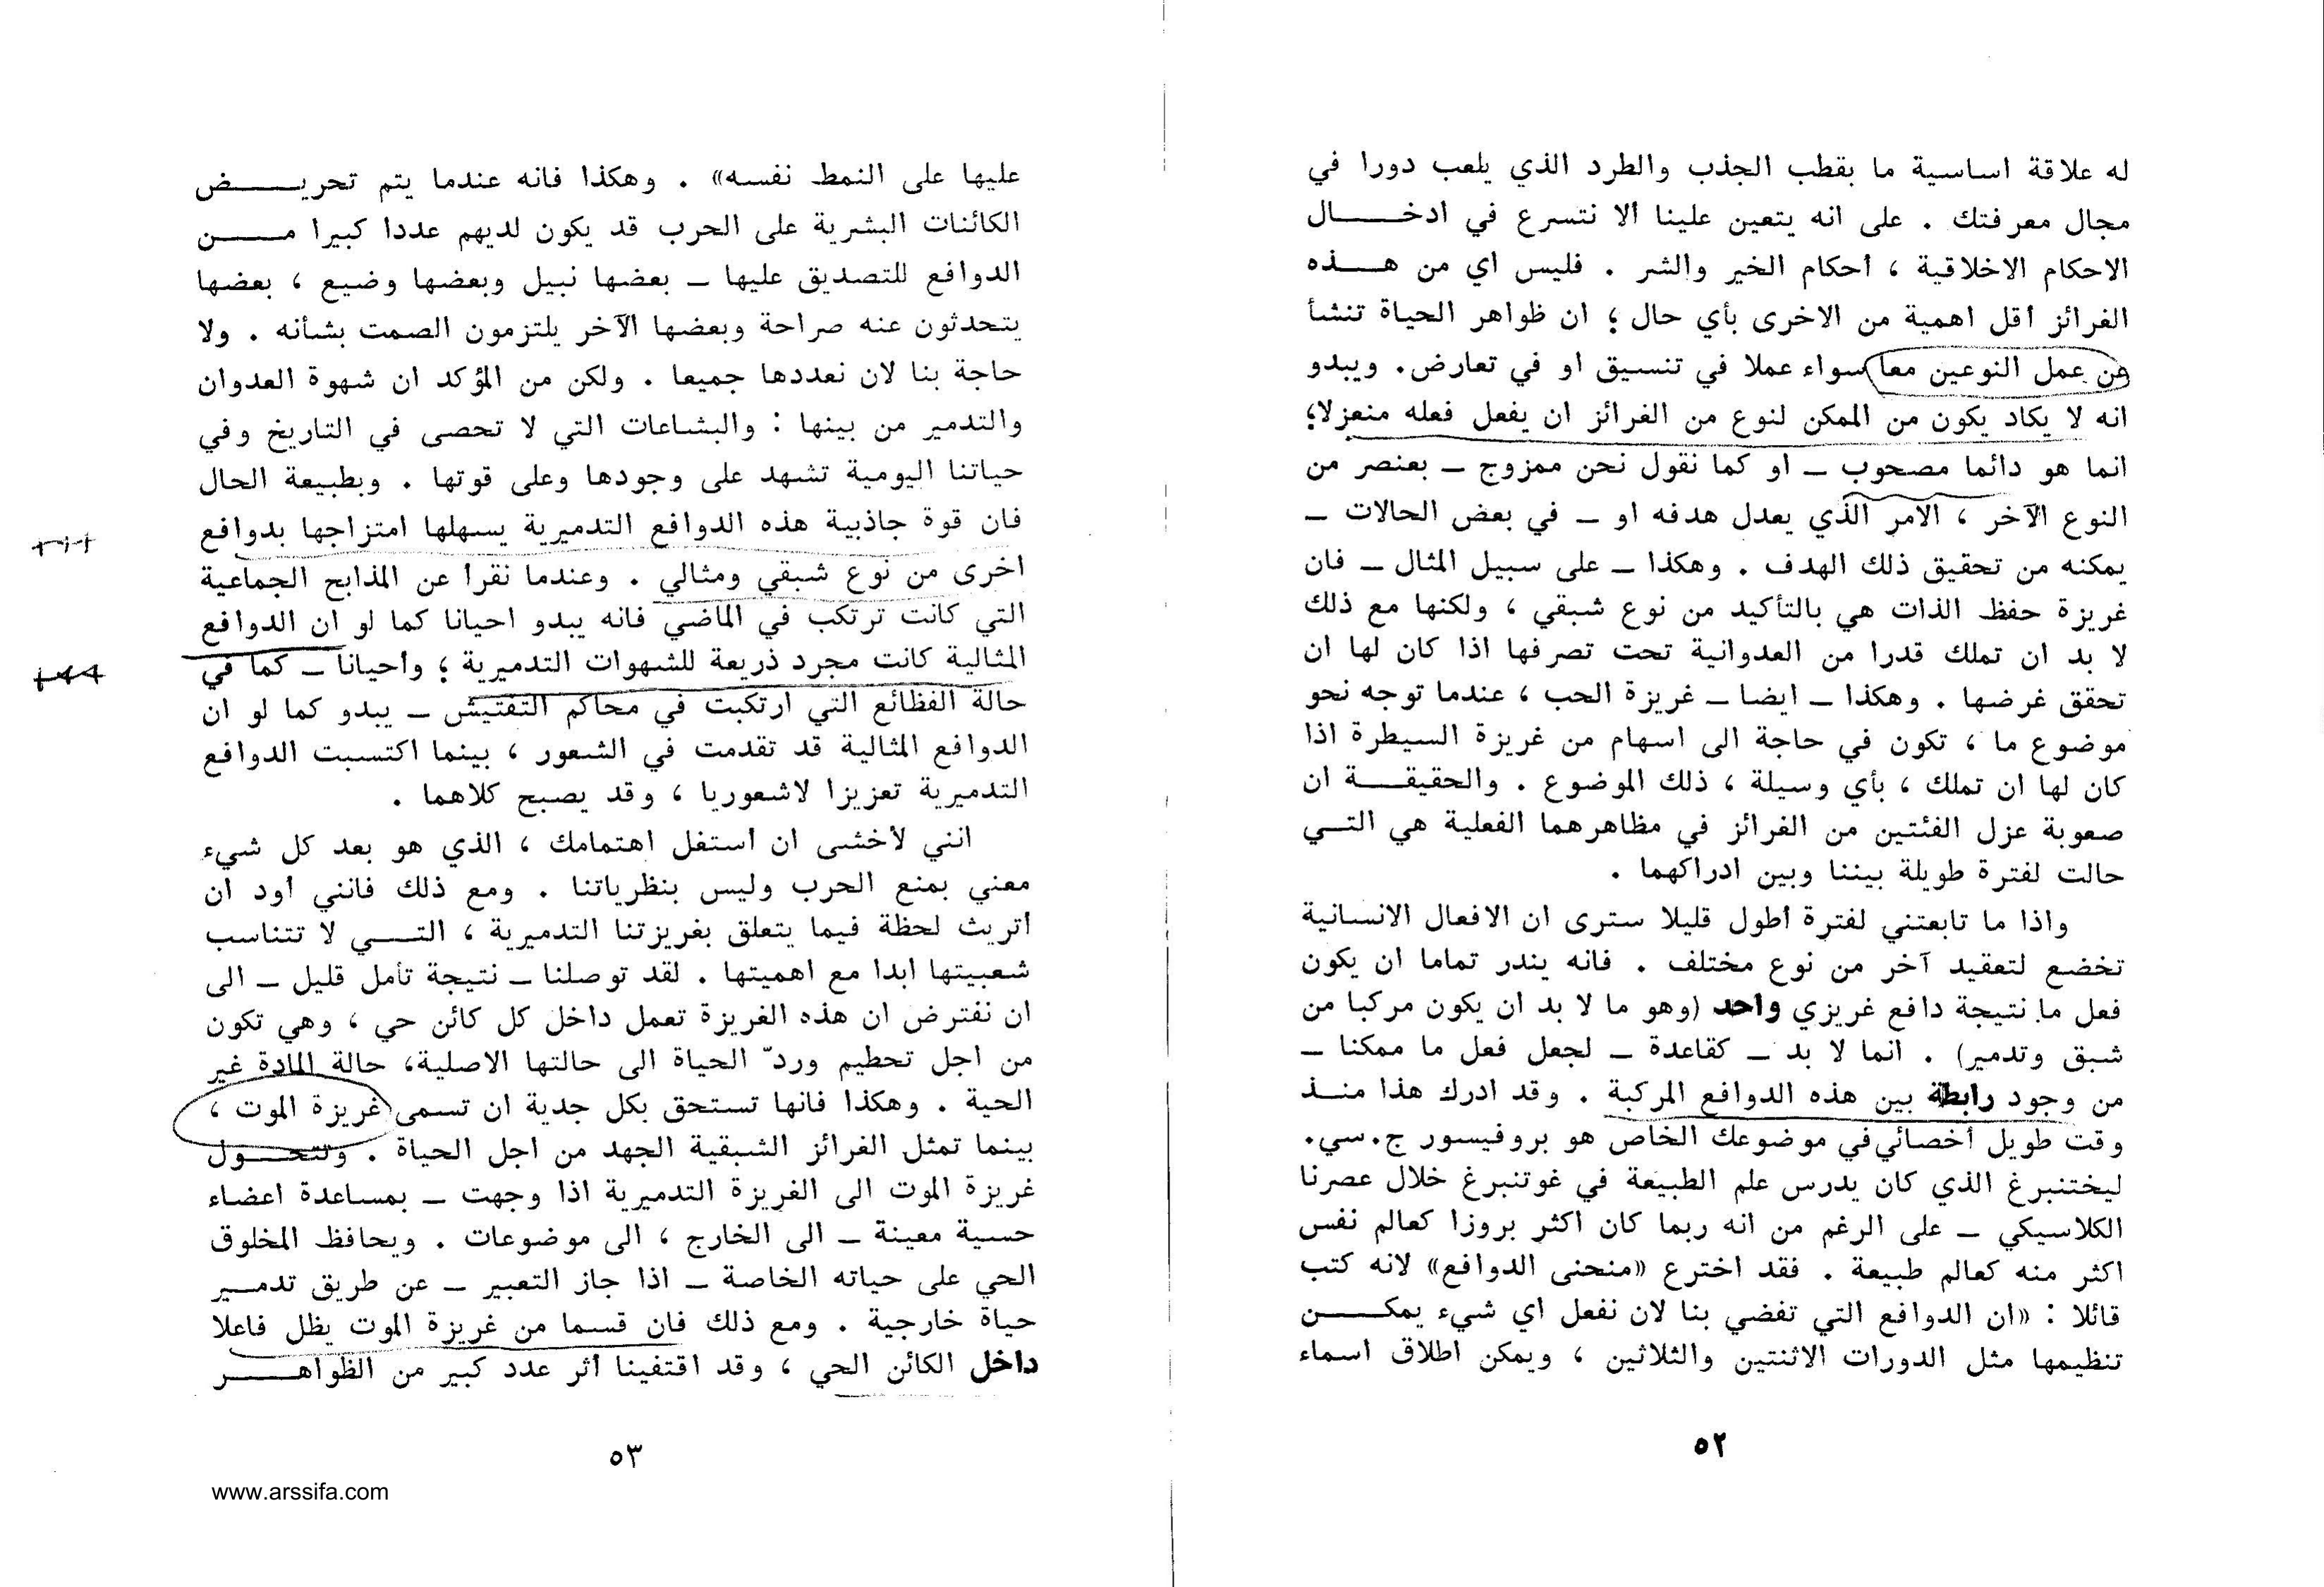 له علاقة اساسية ما بقطب الجذب والطرد الذي يلعب دورا في
مجال معرفتك . على انه يتعين علينا ألا نتسرع في ادخـــــال
الاحكام الاخلاقية ، أحكام الخير والشر . فليس اي من هـــذه
الغرائز أقل اهمية من الاخرى بأي حال ؛ ان ظواهر الحياة تنشأ
عن عمل النوعين معا سواء عملا في تنسيق او في تعارض. ويبدو
انه لا يكاد يكون من الممكن لنوع من الغرائز ان يفعل فعله منعزلا؛
انما هو دائما مصحوب ــ او كما نقول نحن ممزوج ــ بعنصر من
النوع الآخر ، الامر الذي يعدل هدفه او ــ في بعض الحالات ــ
يمكنه من تحقيق ذلك الهدف . وهكذا ــ على سبيل المثال ــ فان
غريزة حفظ الذات هي بالتأكيد من نوع شبقي ، ولكنها مع ذلك
لا بد ان تملك قدرا من العدوانية تحت تصرفها اذا كان لها ان
تحقق غرضها . وهكذا ــ ايضا ــ غريزة الحب ، عندما توجه نحو
موضوع ما ، تكون في حاجة الى اسهام من غريزة السيطرة اذا
كان لها ان تملك ، بأي وسيلة ، ذلك الموضوع . والحقيقـــة ان
صعوبة عزل الفئتين من الغرائز في مظاهرهما الفعلية هي التــي
حالت لفترة طويلة بيننا وبين ادراكهما .
واذا ما تابعتني لفترة أطول قليلا سترى ان الافعال الانسانية
تخضع لتعقيد آخر من نوع مختلف . فانه يندر تماما ان يكون
فعل ما نتيجة دافع غريزي واحد (وهو ما لا بد ان يكون مركبا من
شبق وتدمير) . انما لا بد ــ كقاعدة ــ لجعل فعل ما ممكنا ــ
من وجود رابطة بين هذه الدوافع المركبة . وقد ادرك هذا منــذ
وقت طويل أخصائي في موضوعك الخاص هو بروفيسور ج. سي.
ليختنبرغ الذي كان يدرس علم الطبيعة في غوتنبرغ خلال عصرنا
الكلاسيكي ــ على الرغم من انه ربما كان اكثر بروزا كعالم نفس
اكثر منه كعالم طبيعة . فقد اخترع «منحنى الدوافع» لانه كتب
قائلا : «ان الدوافع التي تفضي بنا لان نفعل اي شيء يمكـــــن
تنظيمها مثل الدورات الاثنتين والثلاثين ، ويمكن اطلاق اسماء
٥٢
عليها على النمط نفسه» . وهكذا فانه عندما يتم تحريـــــض
الكائنات البشرية على الحرب قد يكون لديهم عددا كبيرا مـــــن
الدوافع للتصديق عليها ــ بعضها نبيل وبعضها وضيع ، بعضها
يتحدثون عنه صراحة وبعضها الآخر يلتزمون الصمت بشأنه . ولا
حاجة بنا لان نعددها جميعا . ولكن من المؤكد ان شهوة العدوان
والتدمير من بينها : والبشاعات التي لا تحصى في التاريخ وفي
حياتنا اليومية تشهد على وجودها وعلى قوتها . وبطبيعة الحال
فان قوة جاذبية هذه الدوافع التدميرية يسهلها امتزاجها بدوافع
اخرى من نوع شبقي ومثالي . وعندما نقرأ عن المذابح الجماعية
التي كانت ترتكب في الماضي فانه يبدو احيانا كما لو ان الدوافع
المثالية كانت مجرد ذريعة للشهوات التدميرية ؛ وأحيانا ــ كما في
حالة الفظائع التي ارتكبت في محاكم التفتيش ــ يبدو كما لو ان
الدوافع المثالية قد تقدمت في الشعور ، بينما اكتسبت الدوافع
التدميرية تعزيزا لاشعوريا ، وقد يصبح كلاهما .
انني لأخشى ان أستغل اهتمامك ، الذي هو بعد كل شيء
معني بمنع الحرب وليس بنظرياتنا . ومع ذلك فانني أود ان
أتريث لحظة فيما يتعلق بغريزتنا التدميرية ، التـــي لا تتناسب
شعبيتها ابدا مع اهميتها . لقد توصلنا ــ نتيجة تأمل قليل ــ الى
ان نفترض ان هذه الغريزة تعمل داخل كل كائن حي ، وهي تكون
من اجل تحطيم وردّ الحياة الى حالتها الاصلية، حالة المادة غير
الحية . وهكذا فانها تستحق بكل جدية ان تسمى غريزة الموت ،
بينما تمثل الغرائز الشبقية الجهد من اجل الحياة . وتتحـــول
غريزة الموت الى الغريزة التدميرية اذا وجهت ــ بمساعدة اعضاء
حسية معينة ــ الى الخارج ، الى موضوعات . ويحافظ المخلوق
الحي على حياته الخاصة ــ اذا جاز التعبير ــ عن طريق تدمـــير
حياة خارجية . ومع ذلك فان قسما من غريزة الموت يظل فاعلا
داخل الكائن الحي ، وقد اقتفينا أثر عدد كبير من الظواهـــــر
٥٣
www.arssifa.com